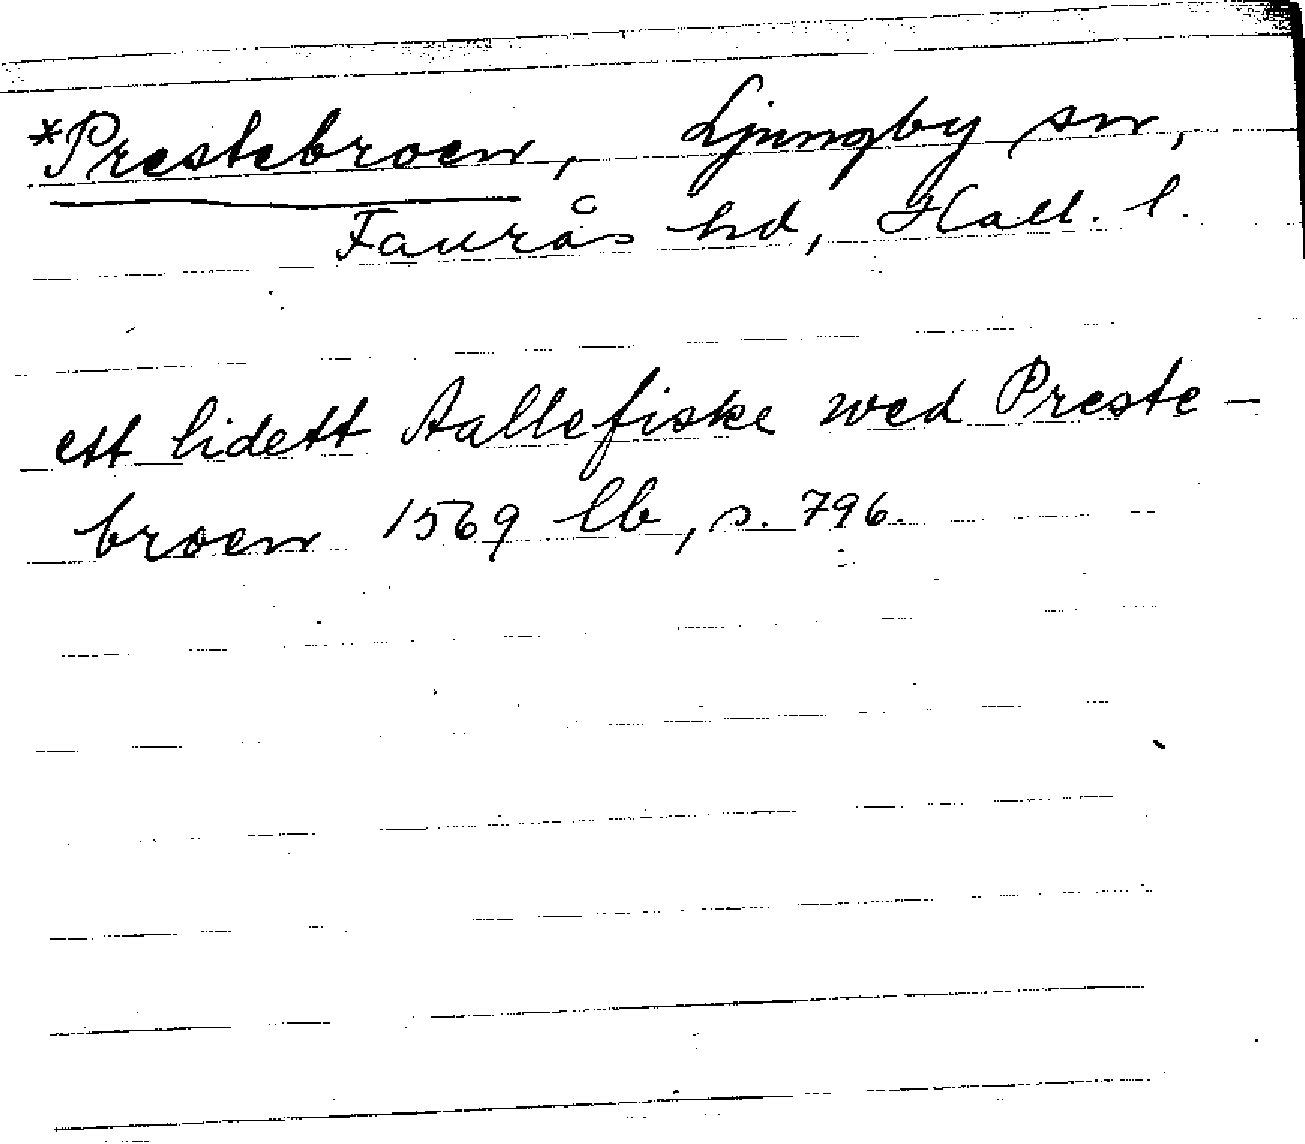 *Prestebroen, Ljungby sn,
Faurås hd, Hall. l.
ett lidett Aallefiske wed Preste-
broen 1569 lb, s. 796.